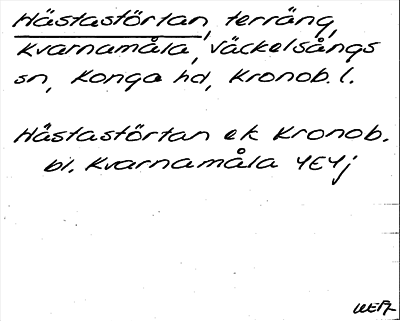 Hästastörtan, terräng,
Kvarnamåla, Väckelsångs
sn, Konga hd, Kronob. l.
Hästastörtan ek Kronob.
bl. Kvarnamåla 4E4j